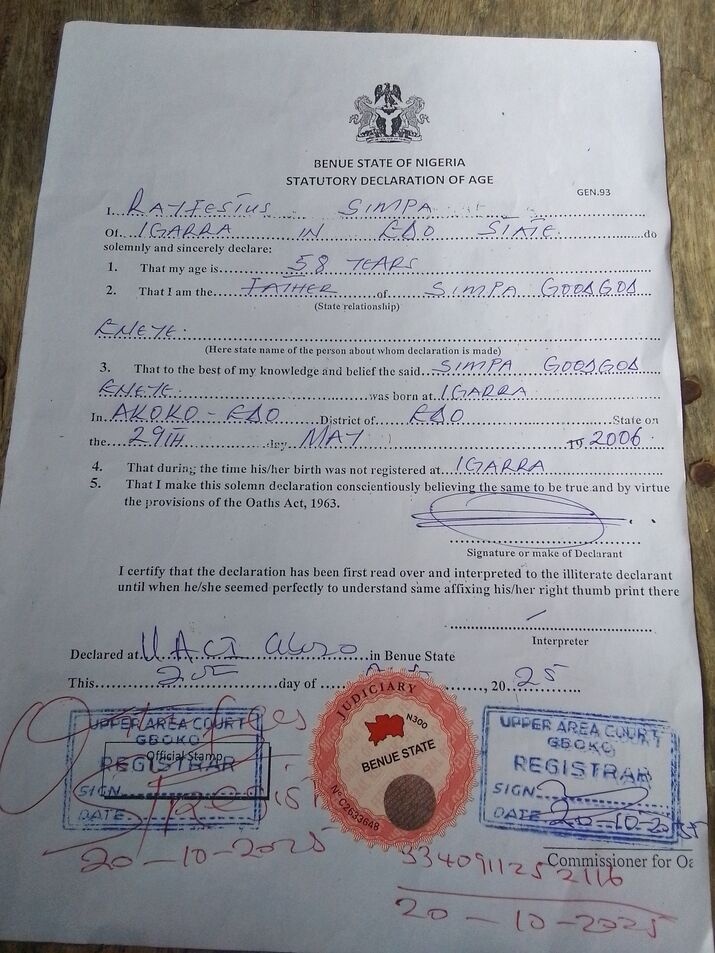 BENUE STATE OF NIGERIA
STATUTORY DECLARATION OF AGE
GEN.93
I. RAYJESIUS SIMPA
Of. IGARRA IN EDO STATE. do
solemnly and sincerely declare:
1. That my age is 58 YEARS
2. That I am the FATHER of SIMPA GOODGOD
(State relationship)
ENEYE.
(Here state name of the person about whom declaration is made)
3. That to the best of my knowledge and belief the said SIMPA GOODGOD
ENEYE. was born at IGARRA
In AKOKO-EDO District of EDO State on
the 29TH day MAY 19 2006.
4. That during the time his/her birth was not registered at IGARRA
5. That I make this solemn declaration conscientiously believing the same to be true and by virtue
the provisions of the Oaths Act, 1963.
Signature or make of Declarant
I certify that the declaration has been first read over and interpreted to the illiterate declarant
until when he/she seemed perfectly to understand same affixing his/her right thumb print there
Interpreter
Declared at in Benue State
This day of , 20 25
JUDICIARY
N300
BENUE STATE
Nº C2633648
UPPER AREA COURT
GBOKO
Official Stamp
REGISTRAR
SIGN
DATE
20-10-2025
UPPER AREA COURT
GBOKO
REGISTRAR
SIGN
DATE 20-10-2025
Commissioner for Oa
334091125 2116
20-10-2025